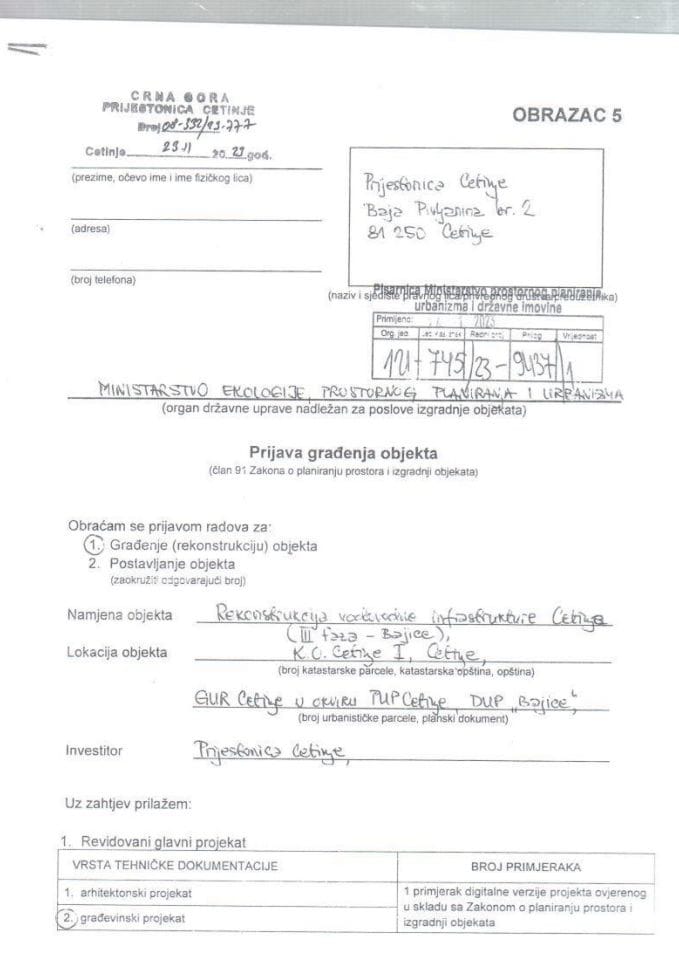 CRNA GORA
PRIJESTONICA CETINJE
Broj 08-332/23-777
Cetinje 23 11 2023 god.
OBRAZAC 5
(prezime, očevo ime i ime fizičkog lica)
(adresa)
(broj telefona)
Prijestonica Cetinje
Baja Pivljanina br. 2
81 250 Cetinje
(naziv i sjedište pravnog lica/privrednog društva/preduzetnika)
Pisarnica Ministarstvo prostornog planiranja
urbanizma i državne imovine
Primljeno: 2023
Org. jed. Redni broj Prilog Vrijednost
121-745/23-9437/1
MINISTARSTVO EKOLOGIJE, PROSTORNOG PLANIRANJA I URBANIZMA
(organ državne uprave nadležan za poslove izgradnje objekata)
Prijava građenja objekta
(član 91 Zakona o planiranju prostora i izgradnji objekata)
Obraćam se prijavom radova za:
1. Građenje (rekonstrukciju) objekta
2. Postavljanje objekta
(zaokružiti odgovarajući broj)
Namjena objekta Rekonstrukcija vodovodne infrastrukture Cetinja
(III faza - Bajice),
Lokacija objekta K.O. Cetinje I, Cetinje,
(broj katastarske parcele, katastarska opština, opština)
GUR Cetinje u okviru PUP Cetinje, DUP „Bajice",
(broj urbanističke parcele, planski dokument)
Investitor Prijestonica Cetinje,
Uz zahtjev prilažem:
1. Revidovani glavni projekat
VRSTA TEHNIČKE DOKUMENTACIJE BROJ PRIMJERAKA
1. arhitektonski projekat
2. građevinski projekat
1 primjerak digitalne verzije projekta ovjerenog
u skladu sa Zakonom o planiranju prostora i
izgradnji objekata